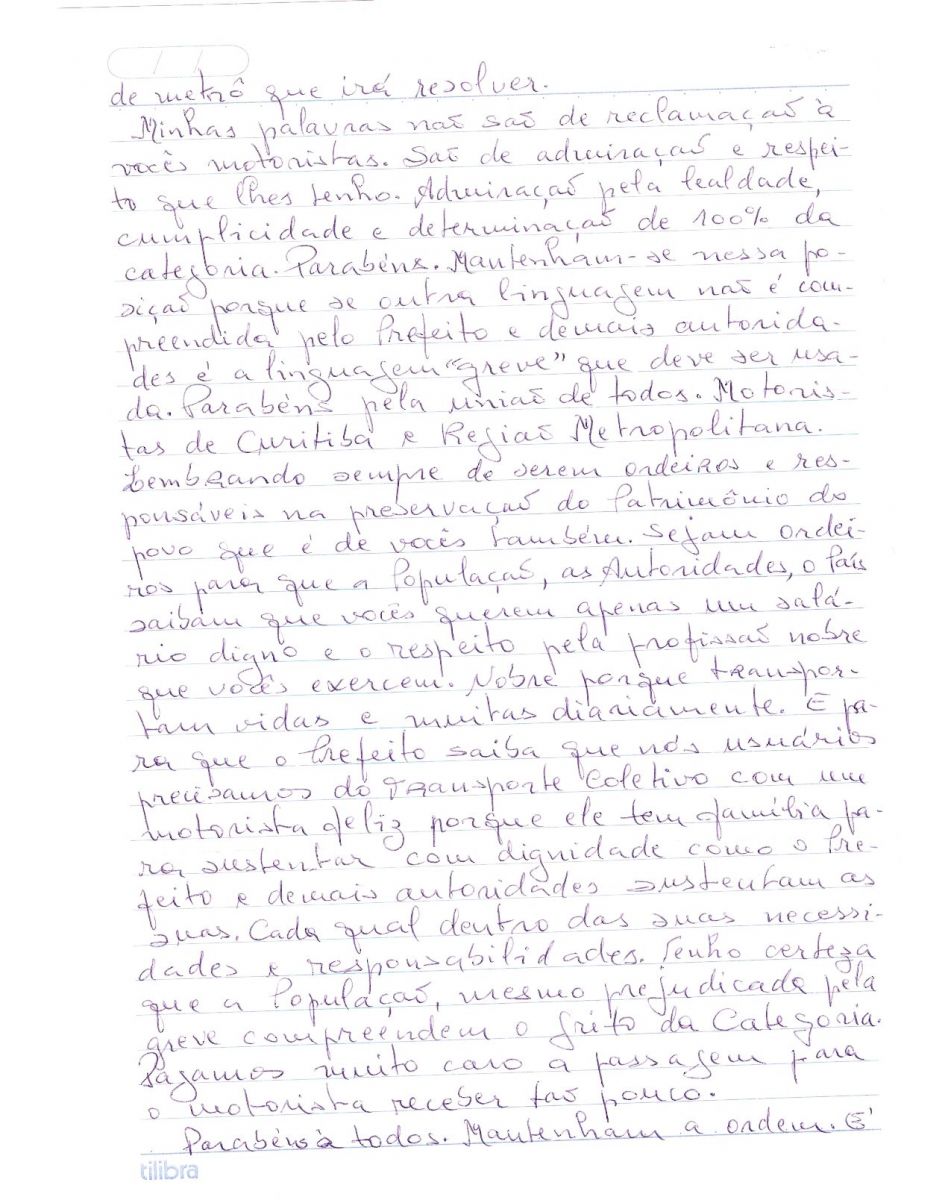 de metrô que irá resolver.
Minhas palavras não são de reclamação à
vocês motoristas. São de admiração e respei-
to que lhes tenho. Admiração pela lealdade,
cumplicidade e determinação de 100% da
categoria. Parabéns. Mantenham-se nessa po-
sição porque se outra linguagem não é com-
preendida pelo Prefeito e demais autorida-
des é a linguagem "greve" que deve ser usa-
da. Parabéns pela união de todos. Motoris-
tas de Curitiba e Região Metropolitana.
Lembrando sempre de serem ordeiros e res-
ponsáveis na preservação do Patrimônio do
povo que é de vocês também. Sejam ordei-
ros para que a População, as Autoridades, o País
saibam que vocês querem apenas um salá-
rio digno e o respeito pela profissão nobre
que vocês exercem. Nobre porque transpor-
tam vidas e muitas diariamente. E pa-
ra que o Prefeito saiba que nós usuários
precisamos do Transporte Coletivo com um
motorista feliz porque ele tem família pa-
ra sustentar com dignidade como o Pre-
feito e demais autoridades sustentam as
suas. Cada qual dentro das suas necessi-
dades e responsabilidades. Tenho certeza
que a População, mesmo prejudicada pela
greve compreendem o grito da Categoria.
Pagamos muito caro a passagem para
o motorista receber tão pouco.
Parabéns à todos. Mantenham a ordem. É
tilibra